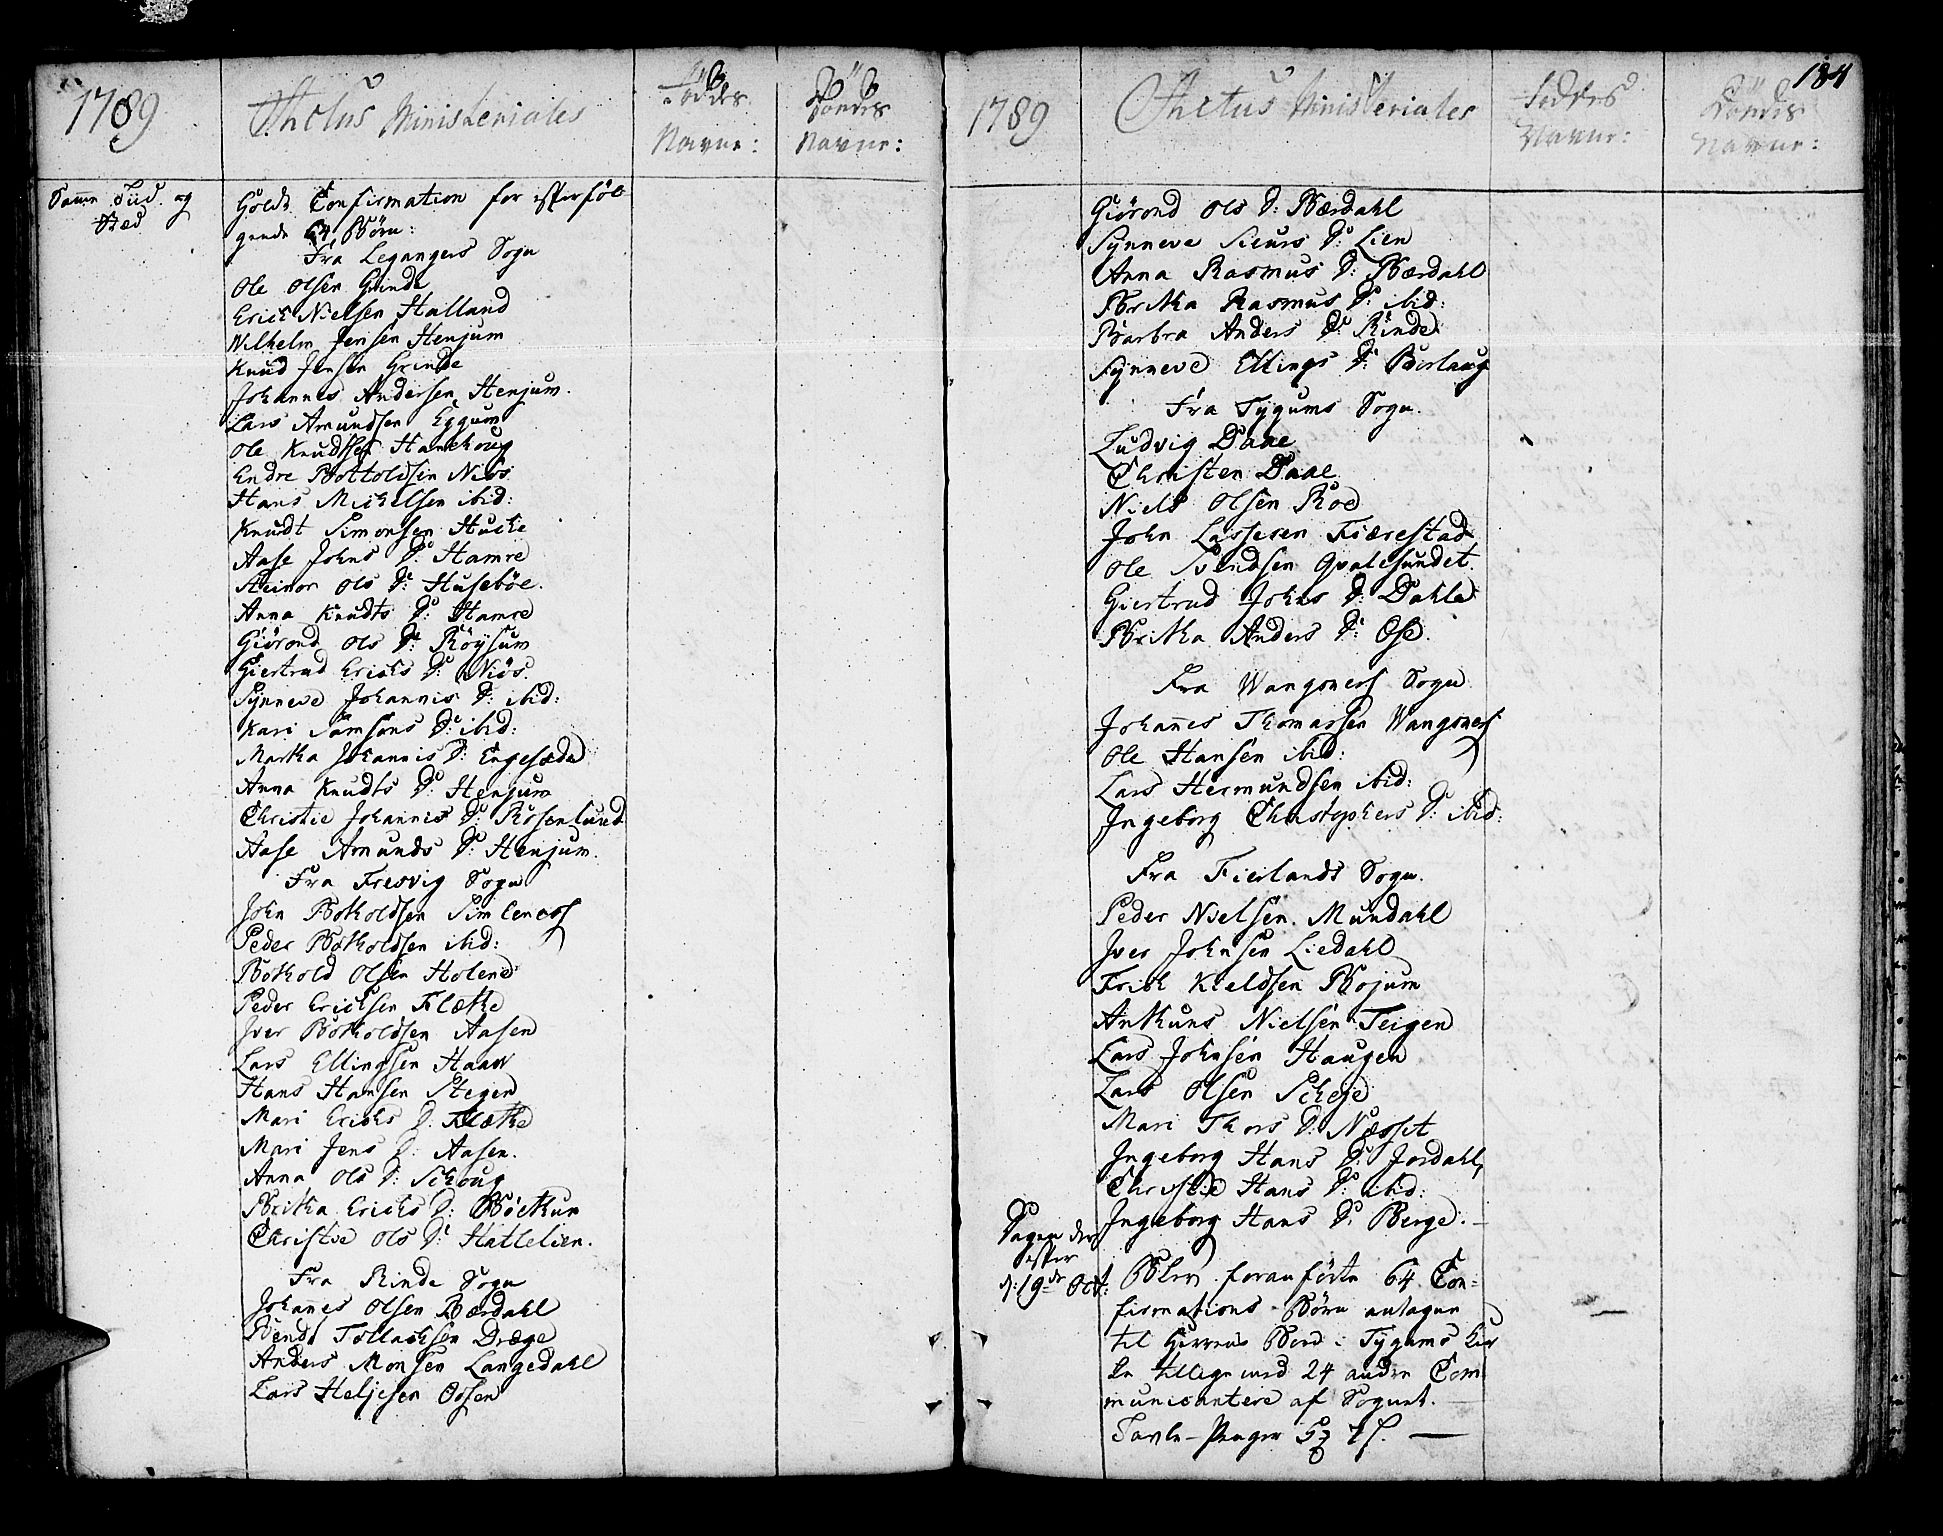 1789
Actus Ministeriales
Föddes
Navne:
Döndes
Navne:
Samme Tiid og
Stæd
Holdt Confirmation for efterföl
gende 64 Börn:
Fra Legangers Sogn
Ole Olsen Grinde
Erich Nielsen Halland
Wilhelm Jensen Henjum
Knud Jensen Grinde
Johannes Andersen Henjum.
Lars Amundsen Eggum
Ole Knudsen Hamehoug
Endre Bottoldsen Niös
Hans Michelsen ibid:
Knudt Simonsen Hucke
Aase Johns D: Hamre
Ols D: Huseböe.
Anna Knudts D: Hamre
Giörond Ols D: Röysum
Giertrud Erichs D: Niös.
Synneve Johannis D: ibid:
Kari Samsons D: ibid:
Martha Johannis D: Engesæde
Anna Knudts D: Henjum
Christie Johannis D: Rosenlund
Aase Amunds D: Henjum.
Fra Fresvig Sogn
John Botholdsen Simlenes
Peder Botholdsen ibid:
Bothold Olsen Holene
Peder Erichsen Flæthe
Iver Botholdsen Aasen
Lars Ellingsen Haaw
Hans Hansen Stegen
Mari Erichs D. Flæthe
Mari Jens D: Aasen.
Anna Ols D: Schoug
Britha Erichs D: Böethun
Christie Ols D: Hattelien.
Fra Rinde Sogn
Johanes Olsen Bærdahl
Bendt Tollachsen Dræge
Anders Monsen Langedahl
Lars Heljesen Ossen
184
1789
Actus Ministeriales
Föddes
Navne:
Döndes
Navne:
Giörond Ols D: Bærdahl
Synneve Siurs D: Lien
Anna Rasmus D: Bærdahl
Britha Rasmus D: ibid:
Barbra Anders D: Rinde
Synneve Ellings D: Borlaug
Fra Tygums Sogn.
Ludvig Daae
Christen Daae
Niels Olsen Roe
John Lassesen Fiærestad
Ole Svendsen Qvalesundet.
Giertrud Johns D: Dahle
Britha Anders D: Ose.
Fra Wangsnes Sogn
Johanes Thomassen Wangsnes
Ole Hansen ibid:
Lars Hermundsen ibid:
Ingeborg Christophers D: ibid:
Fra Fierlands Sogn.
Peder Nielsen Mundahl
Iver Johnsen Liedahl
Frith Kieldsen Bojum
Anthuns Nielsen Teigen
Lars Johnsen Haugen
Lars Olsen Schege
Mari Thors D: Næsset
Ingeborg Hans D: Jordahl,
Christie Hans D: ibid:
Ingeborg Hans D: Berge.
Dagen der
efter
d: 19de Oct.
Blev foranförte 64 Con-
firmations-Börn antagne
til Herrens Bord i Tygums Kir
ke tillige med 24 andre Com
municantere af Sognet.
Tavle-Penger